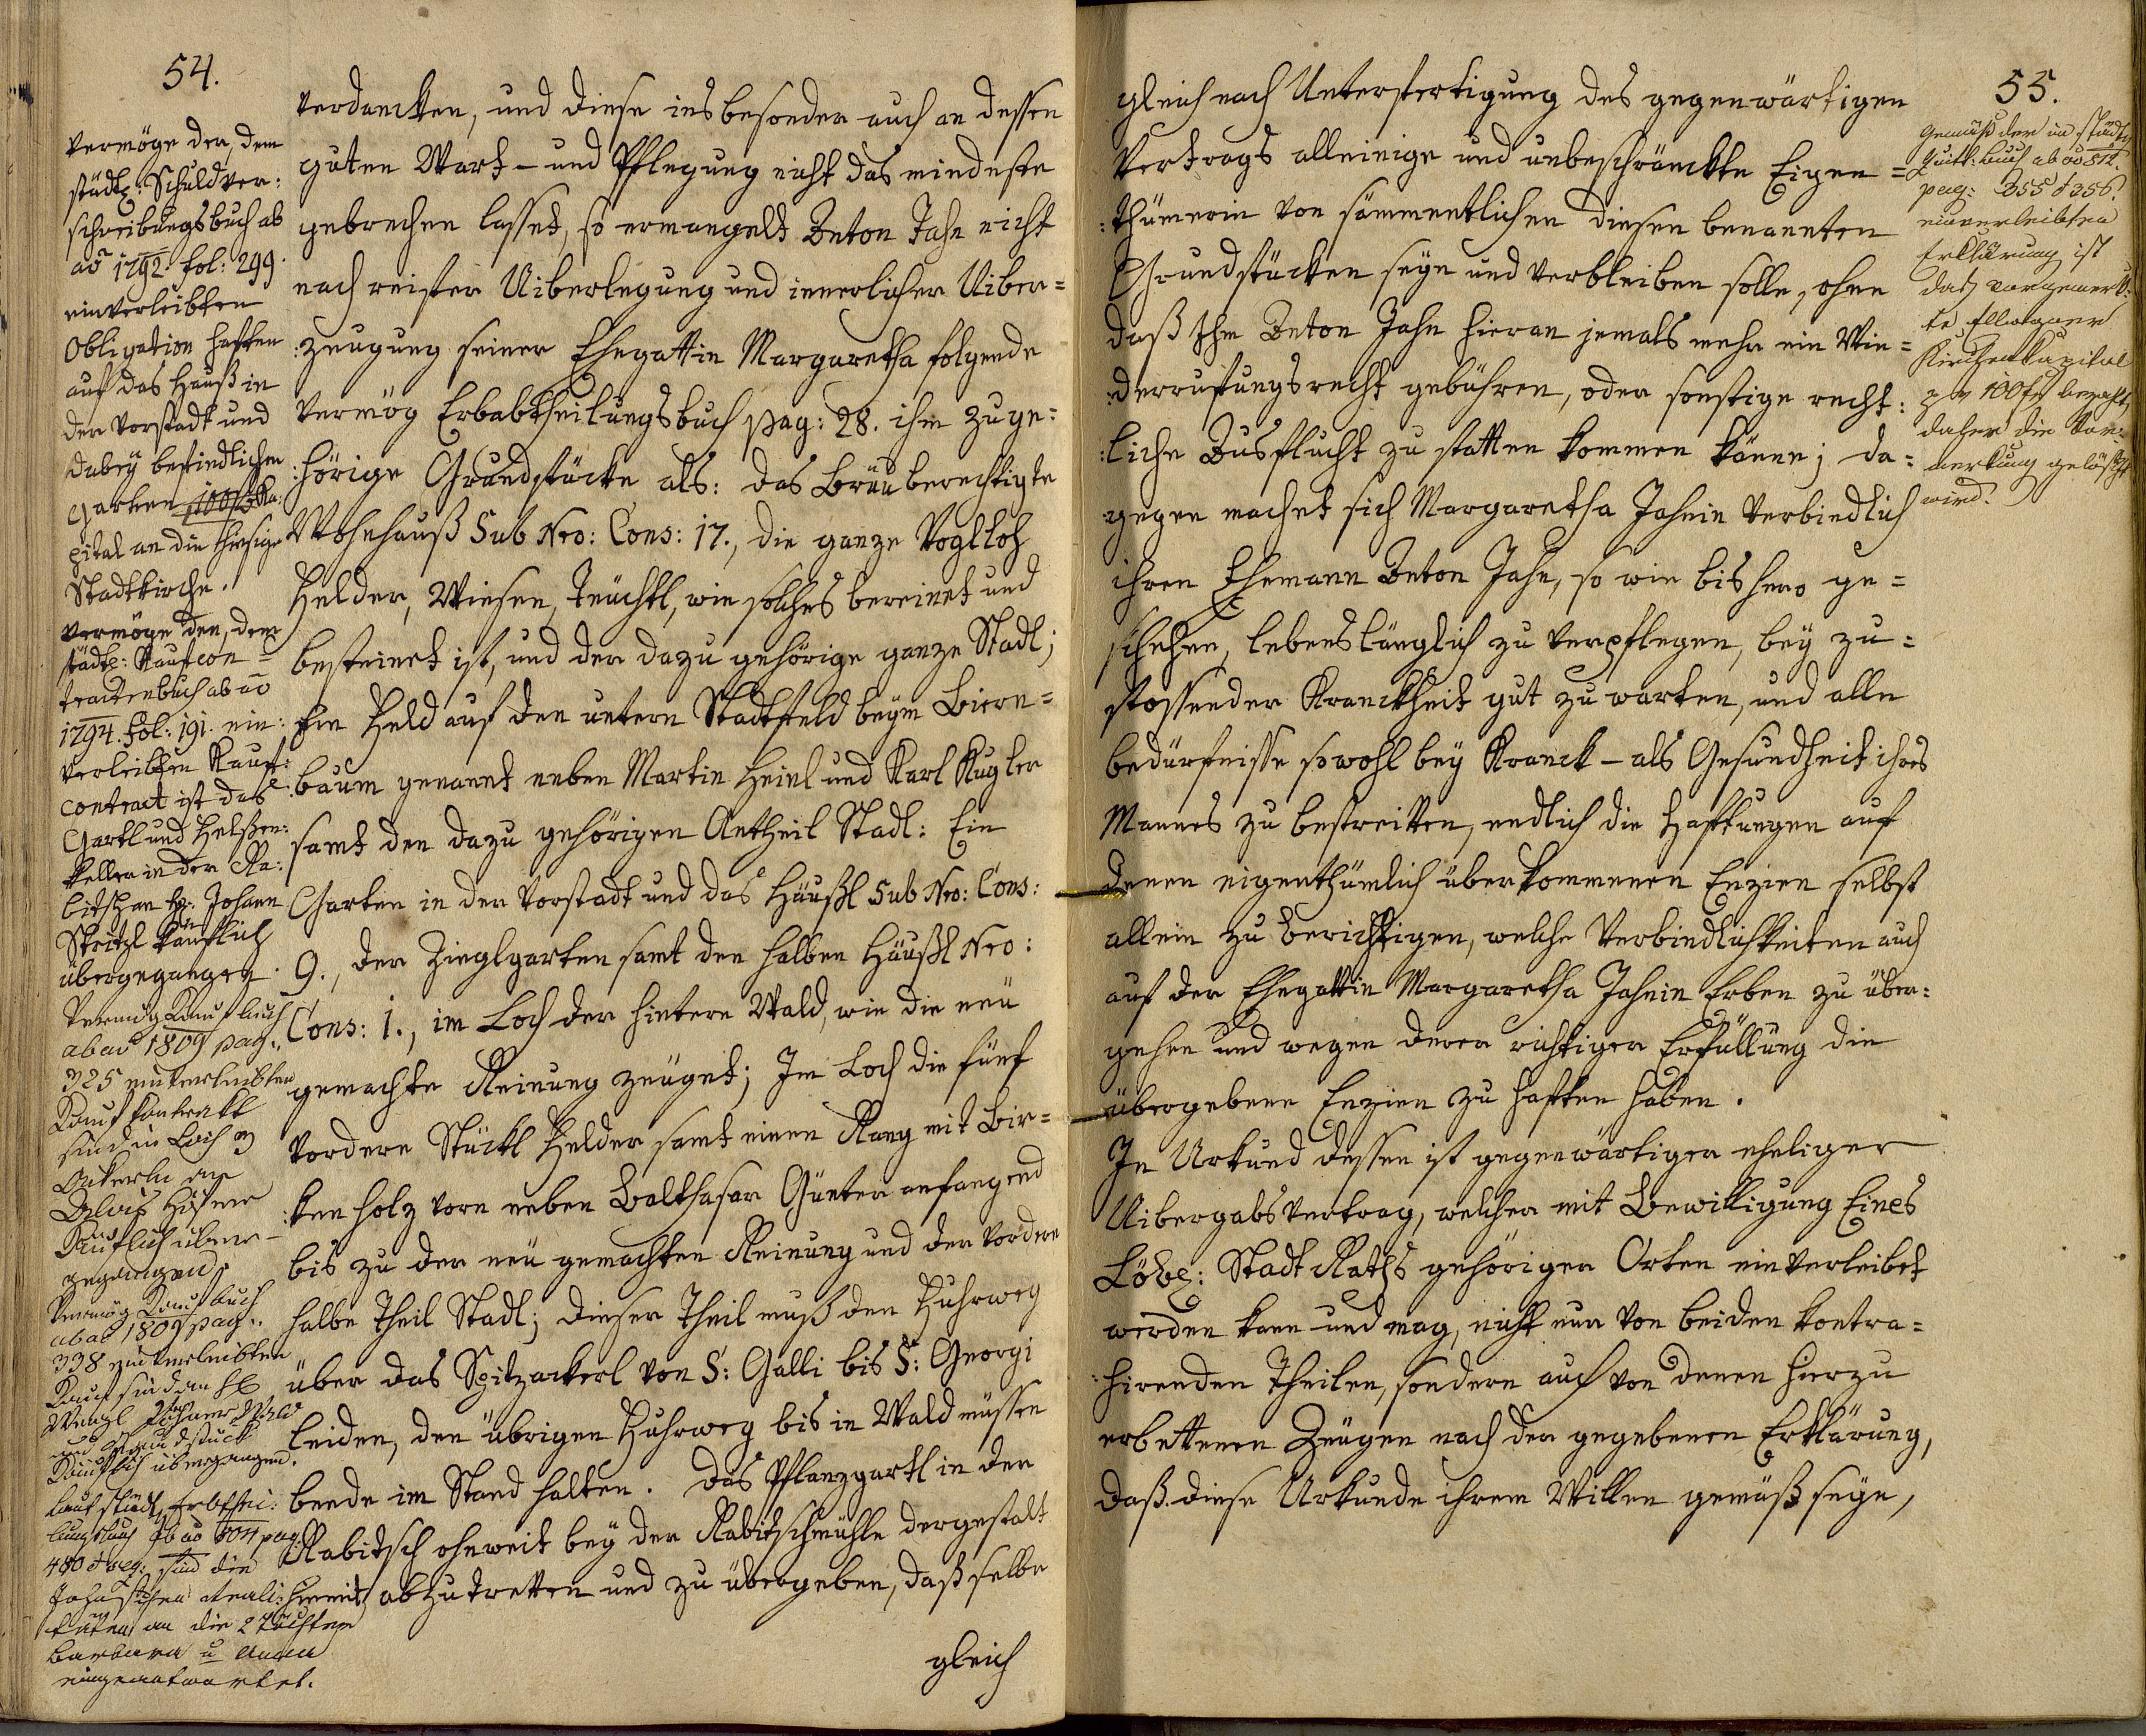 54.
vermöge der, dem
städtl: Schuldver:
schreibungsbuch ab
ao 1792. fol: 299.
einverleibten
Obligation haften
auf das Hauß in
der Vorstadt und
dabey befindlichen
Garten 100 f Ka:
pital an die hiesige
Stadtkirche.
vermöge den, dem
städtl: Kaufcon=
tractenbuch ab ao
1794. fol: 191. ein:
verleibten Kauf:
contract ist das
Gartl und Felßen:
keller in der Ra:
bitsch an H: Johann
käuflich
übergegangen.
Vermög Kaufbuch
ab ao 1809 pag:
325 einverleibten
Kauf kontrakt
sind in Loch 3
Ackerln an
Alois Hösner
Käuflich über-
gegangen.
Vermög Kaufbuch
ab ao 1809 pag:
338 einverleibten
Kauf sind an H
Wenzl Wald
und Grundstück
Käuflich übergangen.
Laut städt. Erbthei:
lungsbuch ab ao 804 pag:
480 & seq: sind die
Jahnischen Reali:
täten an die 2 Töchter
Barbara u Anna
eingeantwortet.
verdanckten, und diese ins besonder auch an dessen
guten Wart- und Pflegung nicht das mindeste
gebrechen lasset, so ermangelt Anton Jahn nicht
nach reifter Uiberlegung und innerlicher Uiber=
:zeugung seiner Ehegattin Margaretha folgende
vermög Erbabtheilungsbuch pag: 28. ihm zuge:
:hörige Grundstücke als: das Bräuberechtigte
Wohnhauß Sub Nro: Cons: 17., die ganze Vogltoh
Felder, Wiesen, Teüchtl, wie solches bereinet und
besteinet ist, und der dazu gehörige ganze Stadl;
Ein Feld auf den untern Stadtfeld beym Biern=
:baum genannt neben Martin Heinl und Karl Kugler
samt den dazu gehörigen Antheil Stadl: Ein
Garten in der Vorstadt und das Häußl Sub Nro: Cons:
9., der Zieglgarten samt den halben Häußl Nro:
Cons: 1., im Loch der hintere Wald, wie die neü
gemachte Reinung zeüget; Im Loch die fünf
vordere Stückl Felder samt einen Rang mit Bir=
:kenholz vorn neben Balthasar Günter anfangend
bis zu der neü gemachten Reinung und der vordere
halbe Theil Stadl; dieser Theil muß den Fuhrweg
über das Spitzackerl von S: Galli bis S: Georgi
leiden, den übrigen Fuhrweg bis in Wald müssen
beede im Stand halten. Das Pflanzgartl in der
Rabitsch ohnweit bey der Rabitschmühle dergestalt
hiemit abzutretten und zu übergeben, daß selbe
gleich
55.
gleich nach Unterfertigung des gegenwärtigen
Vertrags alleinige und unbeschränckte Eigen=
:thümerin von sämmentlichen diesen benannten
Grundstücken seyn und verbleiben solle, ohne
daß Ihm Anton Jahn hieran jemals mehr ein Wie=
:derruffungsrecht gebühren, oder sonstige recht:
:liche Ausflucht zu statten kommen könne; da=
gegen machet sich Margaretha Jahnin verbindlich
ihren Ehemann Anton Jahn, so wie bishero ge=
schehen, lebenslänglich zu verpflegen, bey zu=
stossender Kranckheit gut zu warten, und alle
bedürfnisse sowohl bey Kranck- als Gesundheit ihres
Mannes zu bestreitten, endlich die Haftungen auf
denen eigenthümlich überkommenen Enzien selbst
allein zu berichtigen, welche Verbindlichkeiten auch
auf der Ehegattin Margaretha Jahnin Erben zu über:
gehen und wegen derer richtigen Erfüllung die
übergebene Enzien zu haften haben.
In Urkund dessen ist gegenwärtiger eheliger
Uibergabsvertrag, welcher mit Bewilligung Eines
Löbl: Stadt Raths gehörigen Orten einverleibet
werden kann und mag, nicht nur von beiden kontra=
:hirenden Theilen, sondern auch von denen hierzu
erbettenen Zeügen nach der gegebenen Erklärung,
daß diese Urkunde ihrem Willen gemäß seye,
Gemäß der im städt
Quitt: buch ab ao 812.
pag: 355 & 356.
einverleibten
Erklärung ist
das vorgemerk:
te
Kirchenkapital
per 100 f bezahlt,
daher die Vor=
merkung gelöscht
wird.